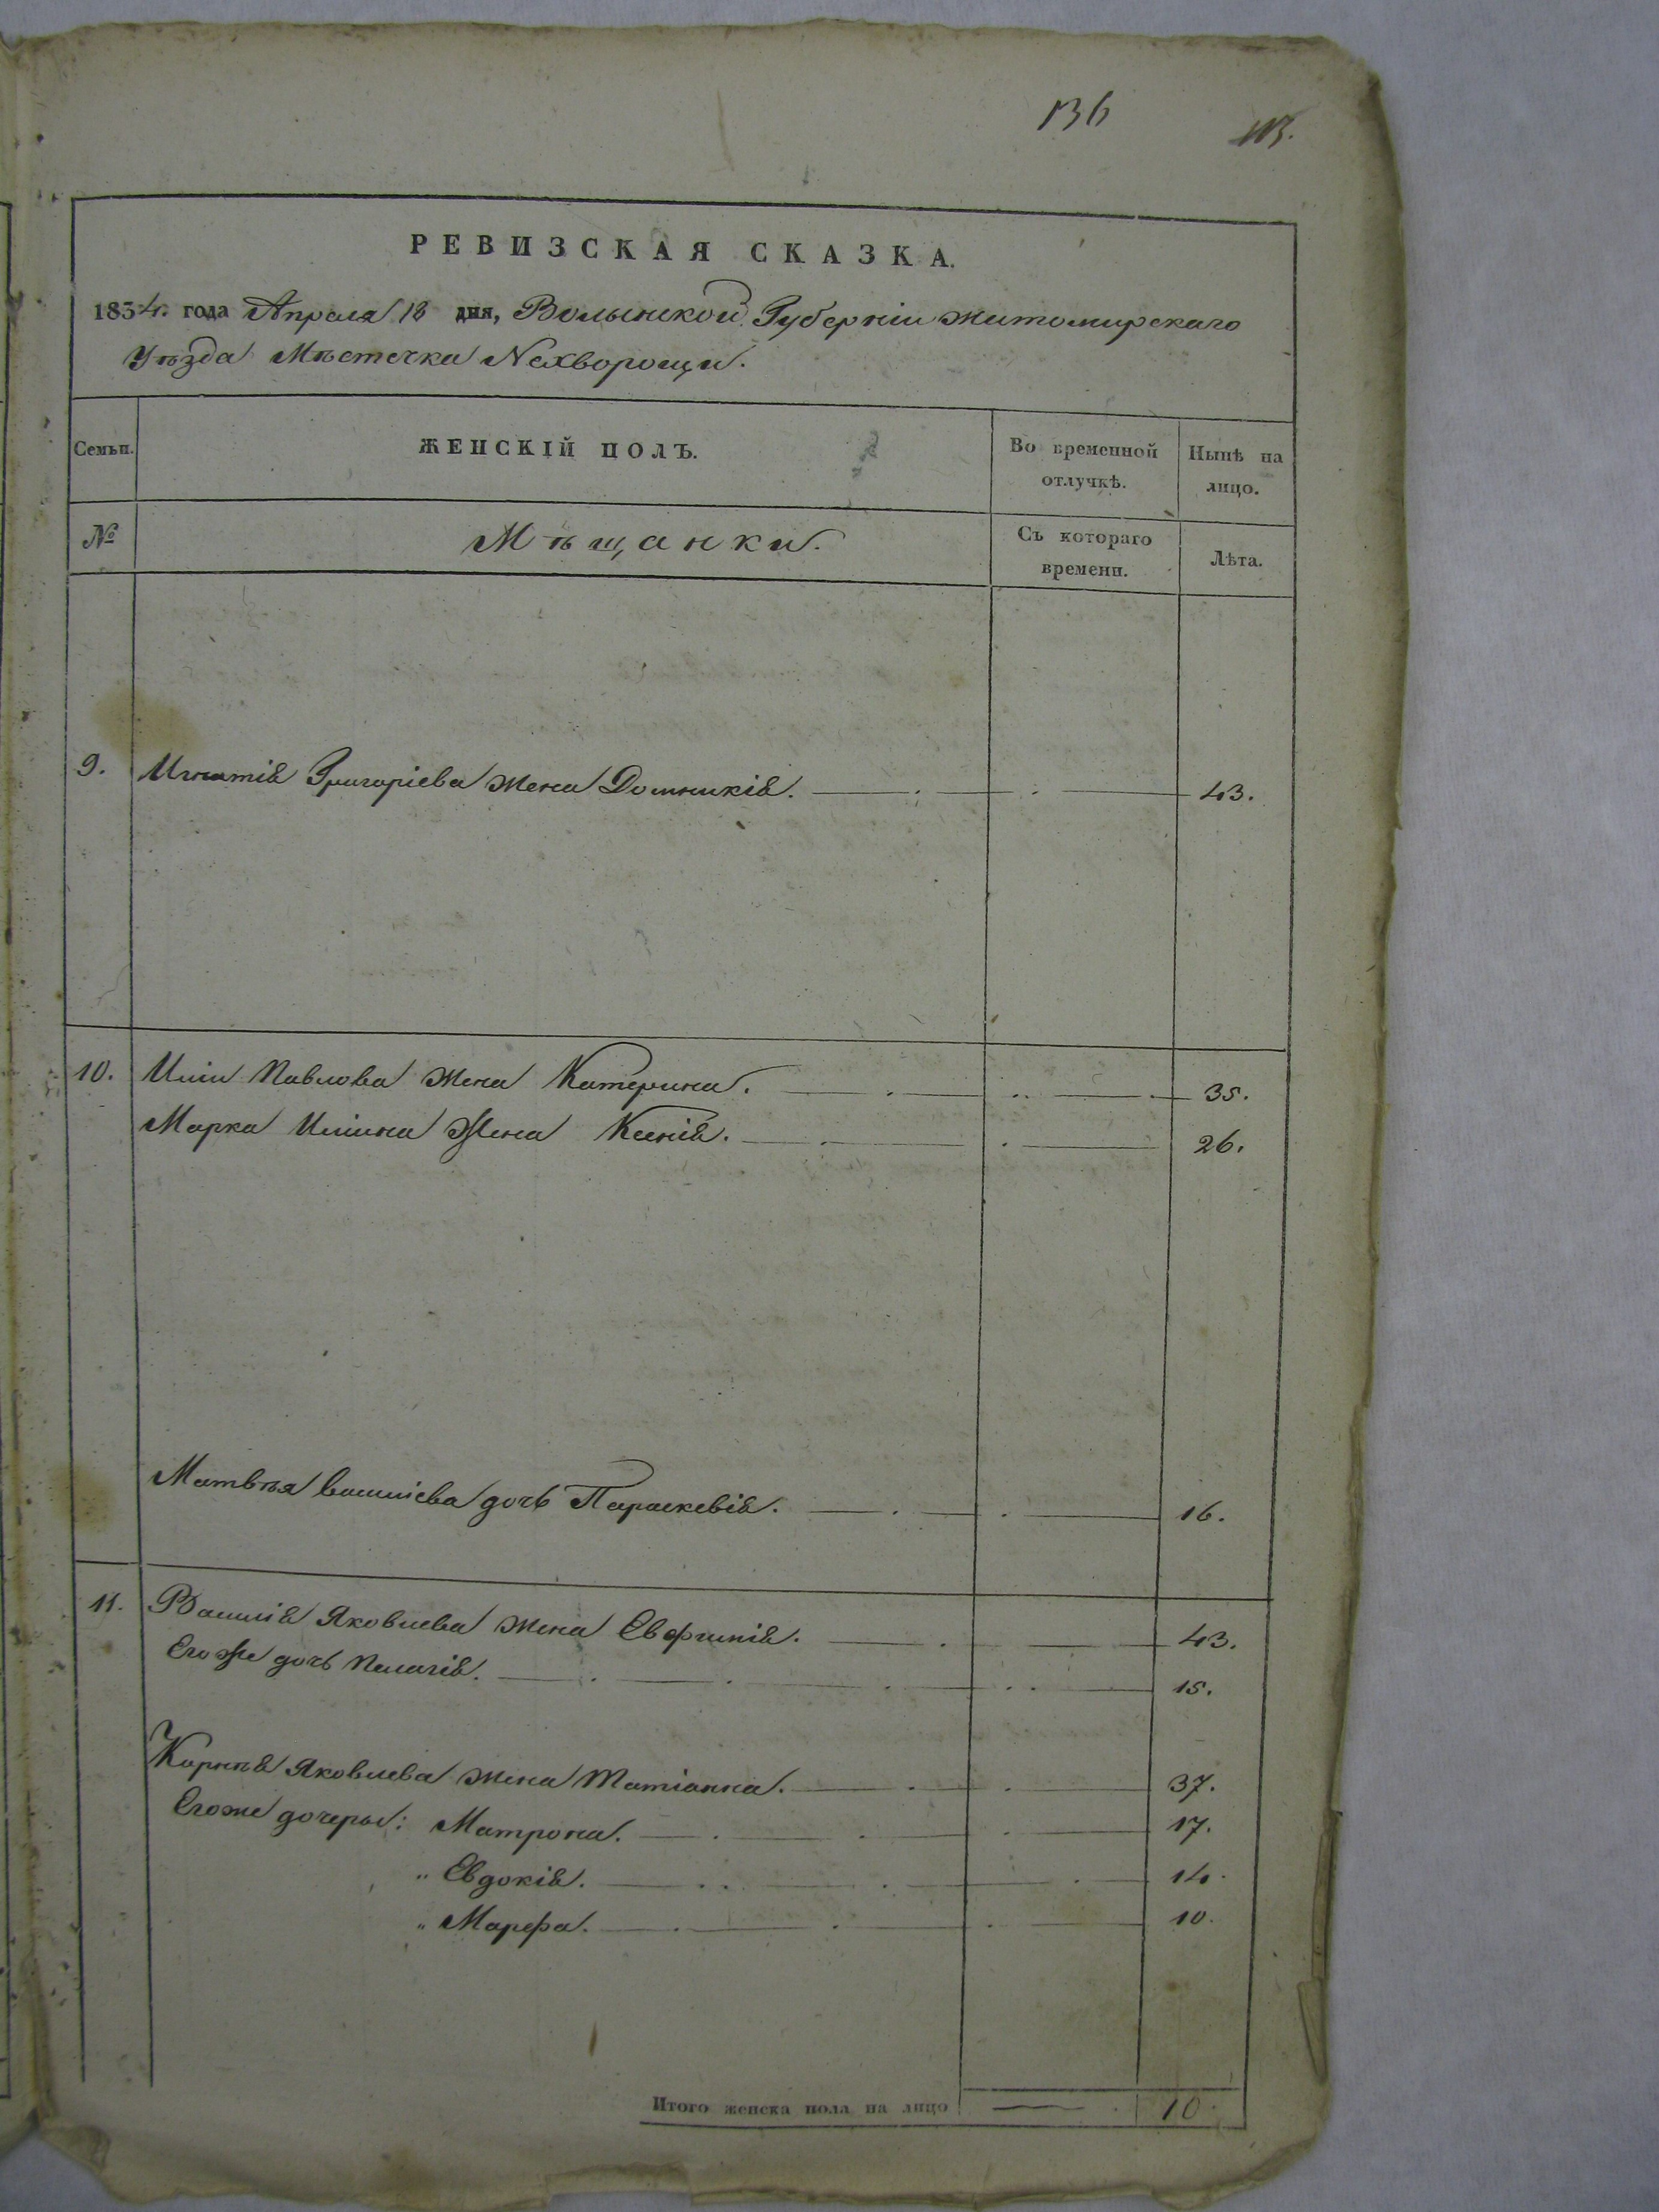 136
113.
РЕВИЗСКАЯ СКАЗКА.
1834. года Апреля 18 дня, Волынской Губерніи Житомирскаго
Уѣзда Мѣстечка Нехворощи.
Семьи. ЖЕНСКІЙ ПОЛЪ. Во временной отлучкѣ. Нынѣ на лицо.
№ Мѣщанки. Съ котораго времени. Лѣта.
9. Игнатія Григоріева жена Домникія. 43.
10. Иліи Павлова жена Катерина. 35.
Марка Иліина жена Ксенія. 26.
Матвѣя Василіева дочь Параскевія. 16.
11. Василія Яковлева жена Евфимія. 43.
Егоже дочь Пелагія. 15.
Корнѣя Яковлева жена Матіанна. 37.
Егоже дочеры: Матрона. 17.
„ Евдокія. 14.
„ Марфа. 10.
Итого женска пола на лицо 10.